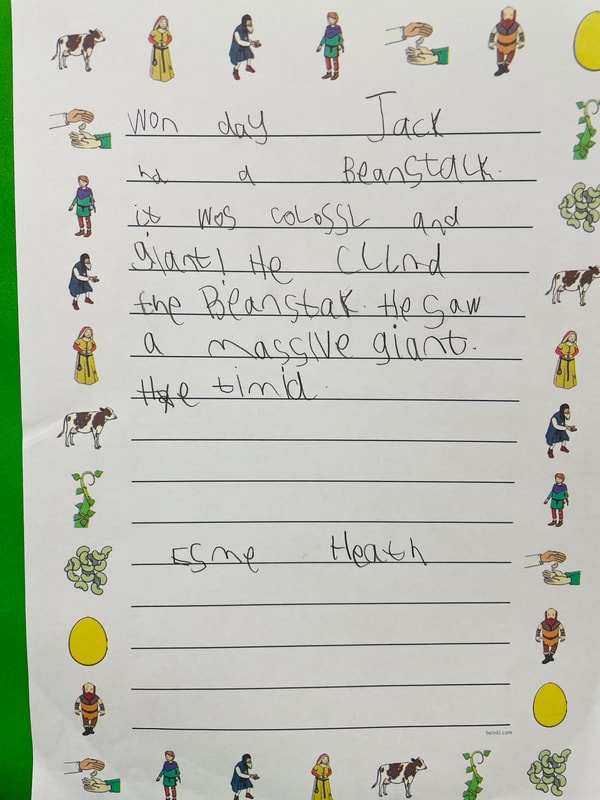 Won day Jack
hd a Beanstalk.
it wos colossl and
giant! He CLLmd
the Beanstak. He saw
a massive giant.
He timid.
Esme Heath
twinkl.com